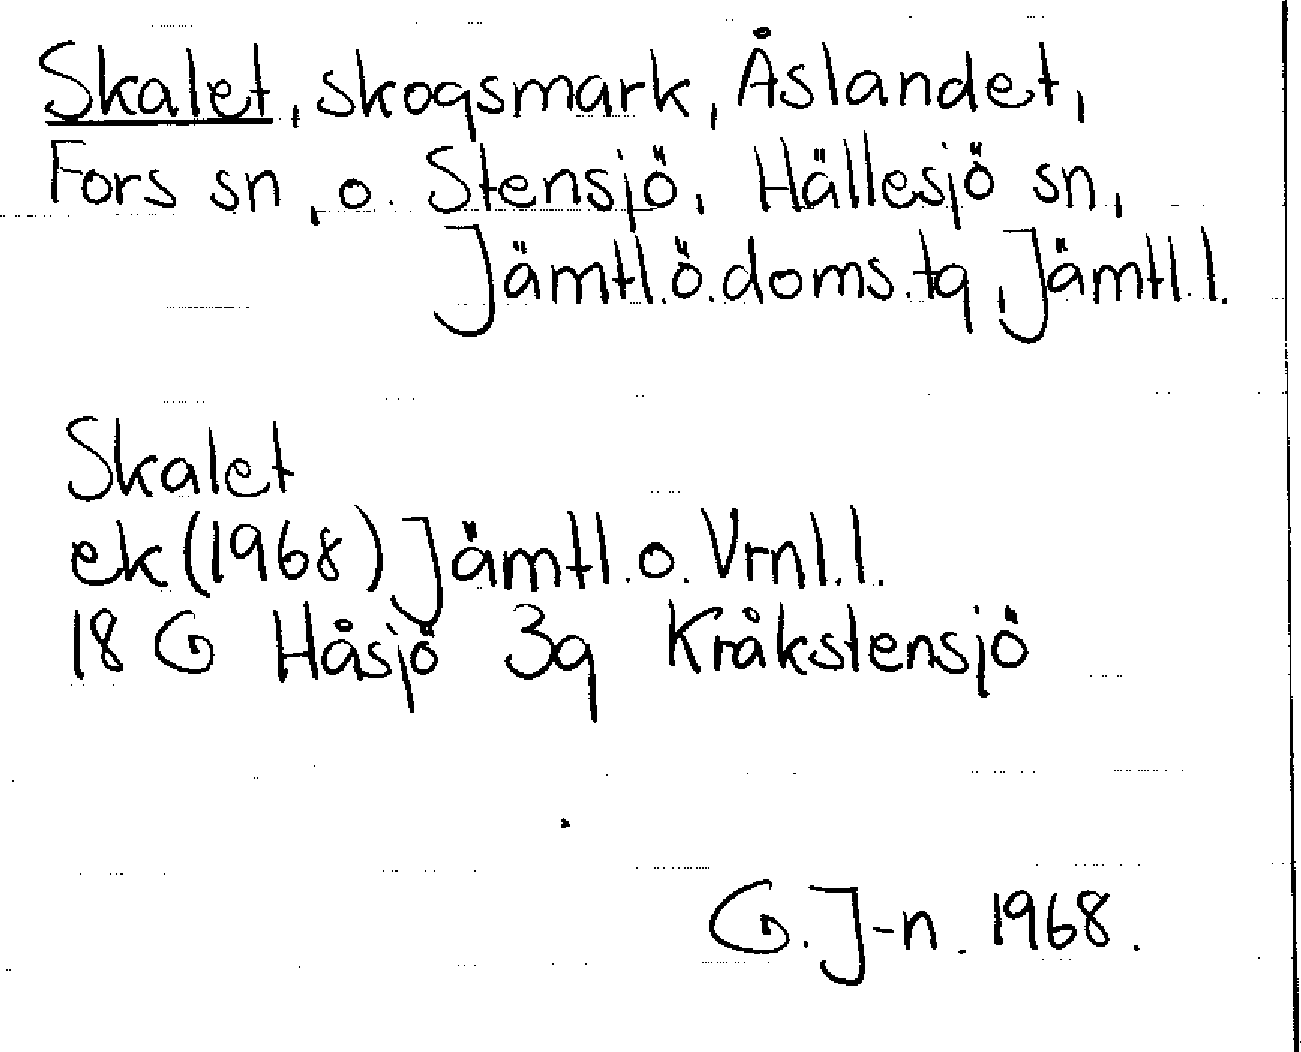 Skalet, skogsmark, Åslandet,
Fors sn, o. Stensjö, Hällesjö sn,
Jämtl.ö.doms.tg, Jämtl.l.
Skalet
ek (1968) Jämtl. o. Vrnl.l.
18 G Håsjö 3g Kråkstensjö
G. J-n. 1968.